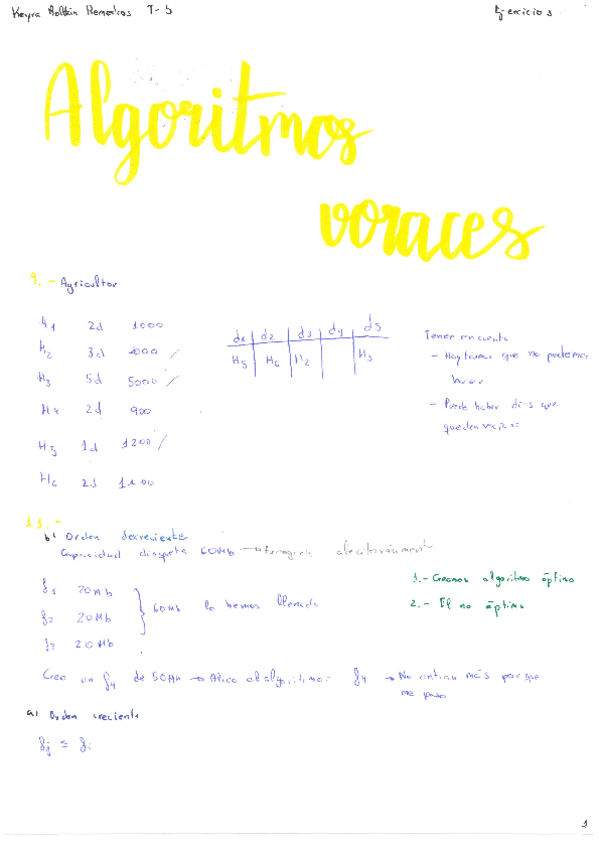 Keyra Roldán Remedios T-5 Ejercicios
Algoritmos
voraces
9.- Agricultor
H1 2d 1000
H2 3d 2000 /
H3 5d 5000 /
H4 2d 900
H5 1d 1200 /
H6 2d 1100
d1 d2 d3 d4 d5
H5 H6 H2 H3
Tener en cuenta
- Hay tareas que no podemos
hacer
- Puede haber días que
queden vacíos
11.-
b) Orden decreciente
Capacidad disquete 60Mb →
f1 20Mb
f2 20Mb
f3 20Mb
} 60Mb lo hemos llenado
1.- Creamos algoritmo óptimo
2.- El no óptimo
Creo un f4 de 50Mb → Aplico el algoritmo: f4 → No entran más porque
me paso
a) Orden creciente
fj ≤ fi
1